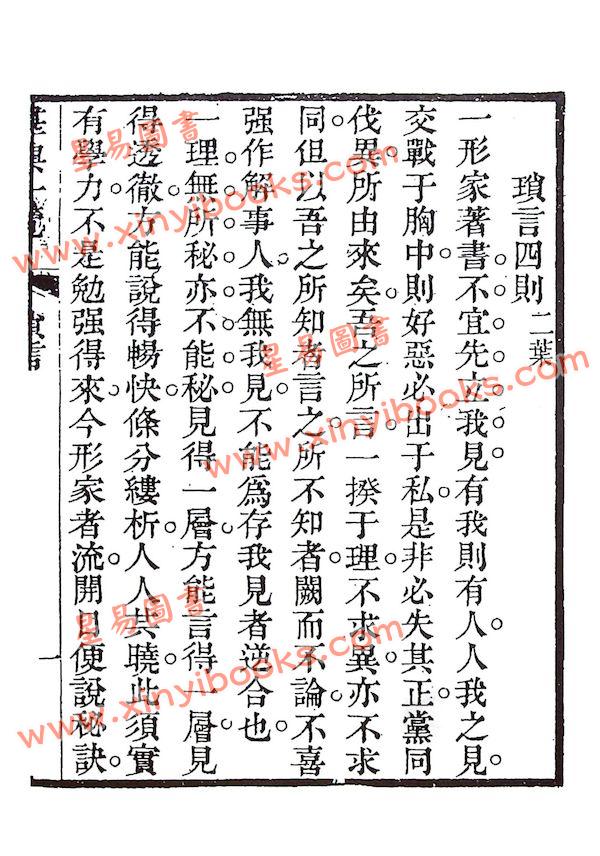 瑣言四則 二葉
一形家著書。不宜先立我見。有我則有人。人我之見。
交戰于胸中。則好惡必出于私。是非必失其正。黨同
伐異。所由來矣。吾之所言。一揆于理。不求異。亦不求
同。但以吾之所知者言之。所不知者闕而不論。不喜
强作解事人。我無我見。不能爲存我見者逆合也。
一理無所秘。亦不能秘。見得一層。方能言得一層。見
得透徹。方能說得暢快。條分縷析。人人共曉。此須實
有學力。不是勉强得來。今形家者流。開口便說秘訣。
瑣言
一
星易图書
www.xinyibooks.com
星易图書
www.xinyibooks.com
星易图書
www.xinyibooks.com